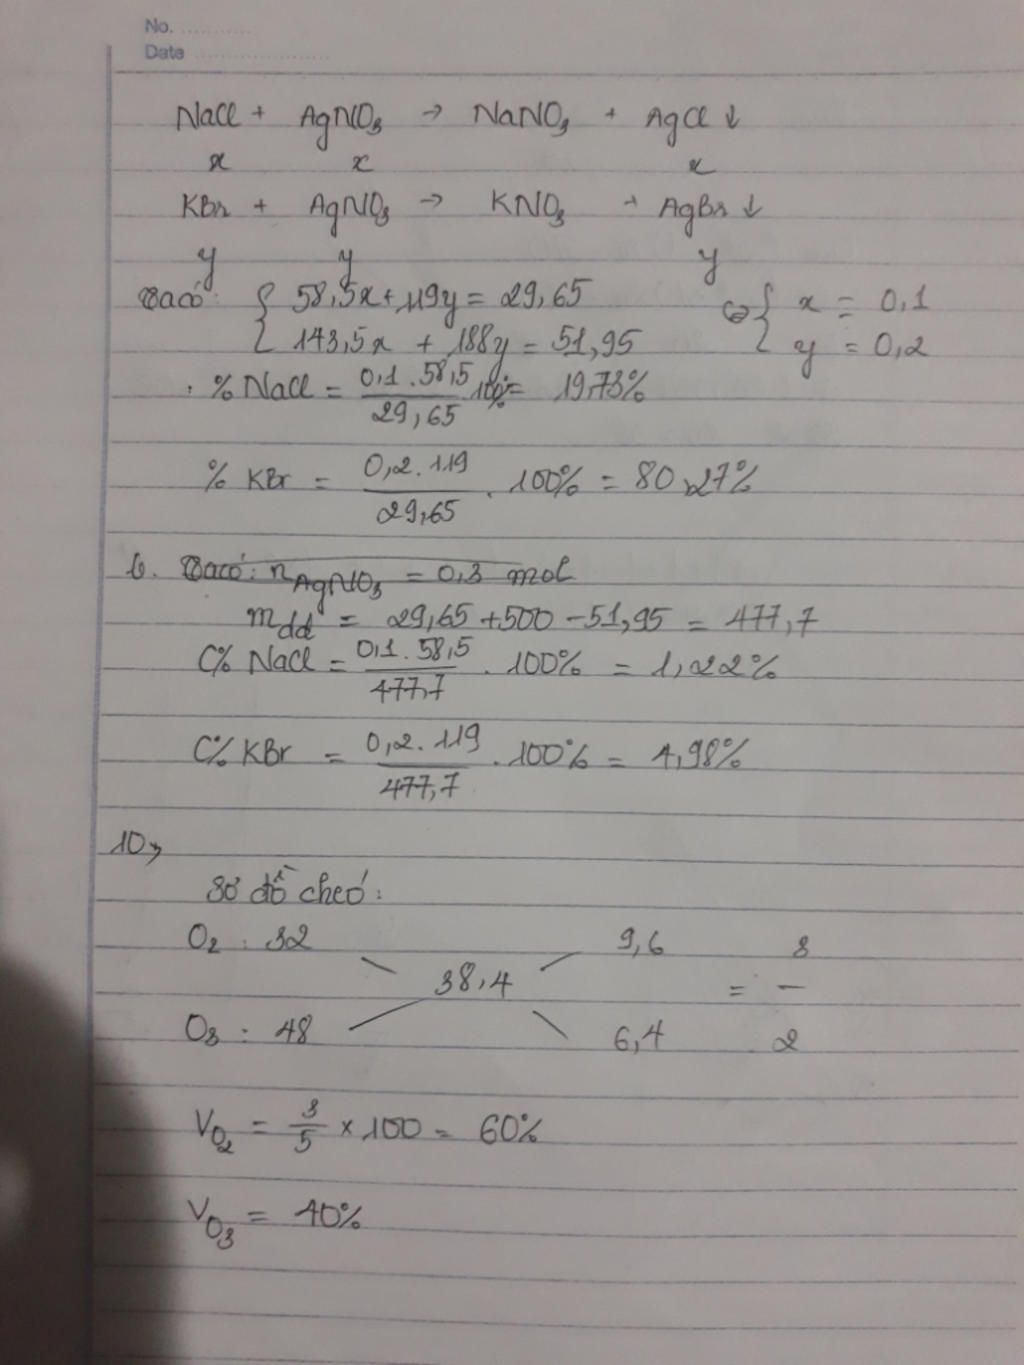 No. ............
Date .......................
NaCl + AgNO₃ → NaNO₃ + AgCl ↓
x x x
KBr + AgNO₃ → KNO₃ + AgBr ↓
y y y
Ta có: { 58,5x + 119y = 29,65 ⇔ { x = 0,1
143,5x + 188y = 51,95 y = 0,2
. % NaCl = 0,1 . 58,5 / 29,65 . 100% = 19,73%
% KBr = 0,2 . 119 / 29,65 . 100% = 80,27%
b. Ta có: n AgNO₃ = 0,3 mol
m dd = 29,65 + 500 - 51,95 = 477,7
C% NaCl = 0,1 . 58,5 / 477,7 . 100% = 1,22%
C% KBr = 0,2 . 119 / 477,7 . 100% = 4,98%
10,
Sơ đồ chéo:
O₂ : 32 9,6 3
38,4 = —
O₃ : 48 6,4 2
V O₂ = 3/5 × 100 = 60%
V O₃ = 40%